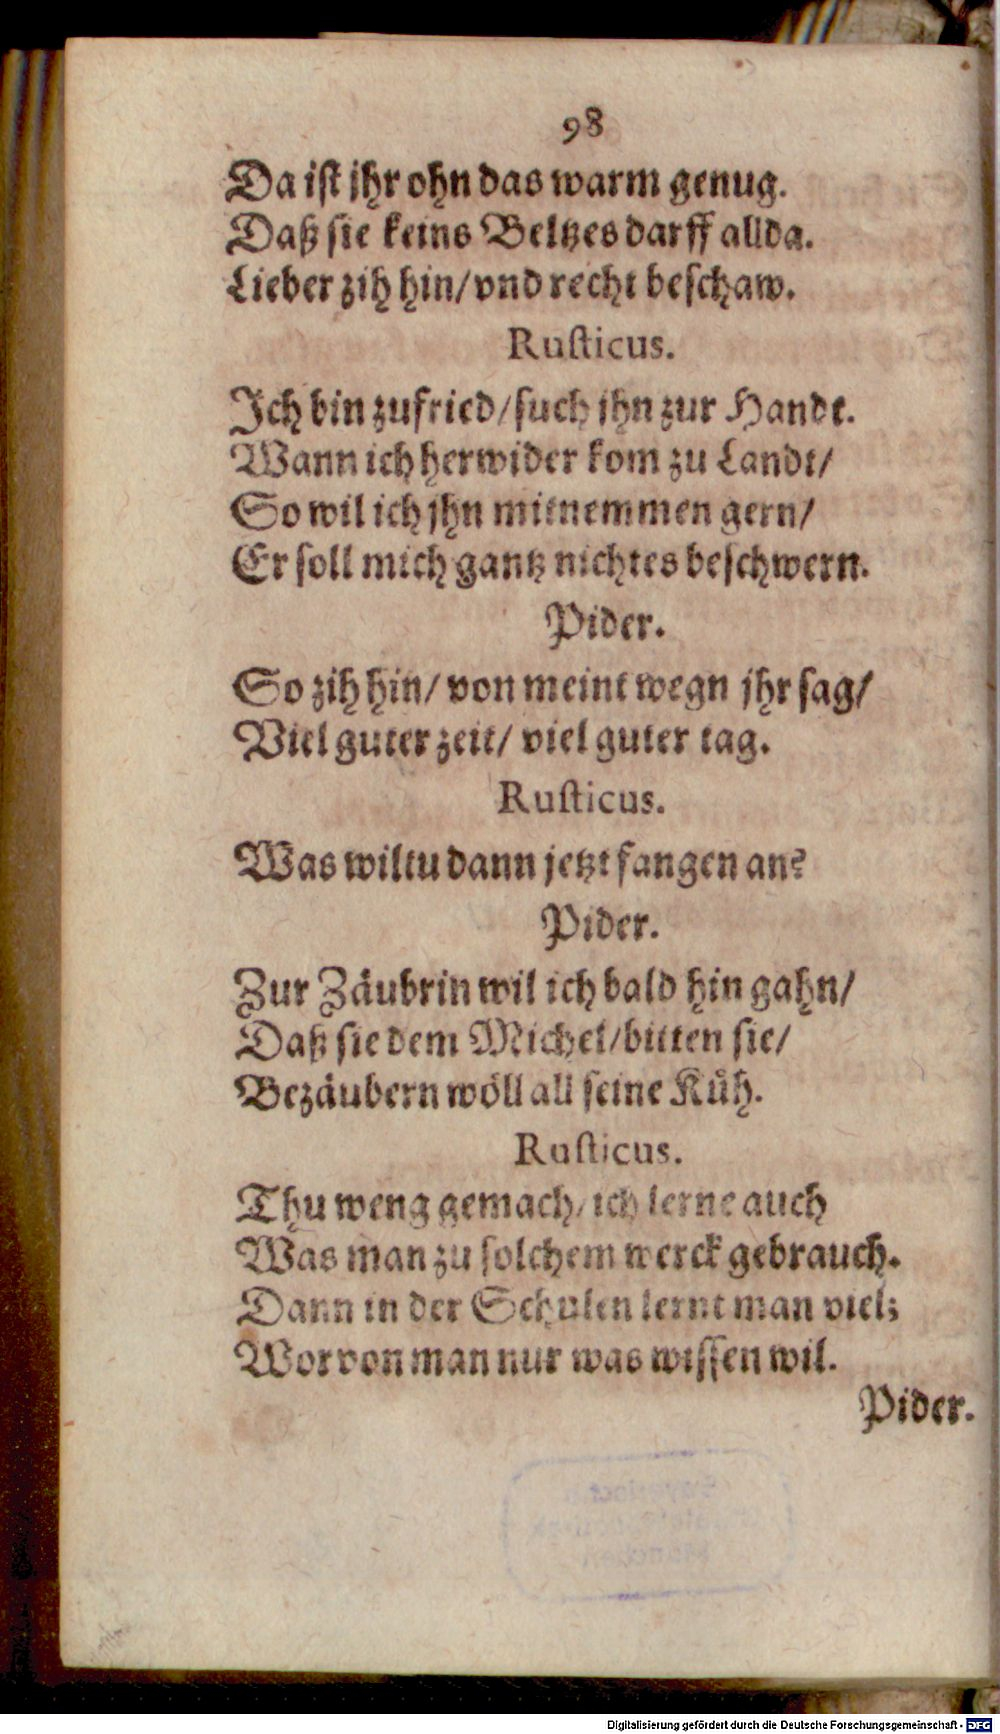 98
Da ist jhr ohn das warm genug.
Daß sie keins Beltzes darff allda.
Lieber zih hin/ vnd recht beschaw.
Rusticus.
Ich bin zufried/ such jhn zur Handt.
Wann ich herwider kom zu Landt/
So wil ich jhn mitnemmen gern/
Er soll mich gantz nichtes beschwern.
Pider.
So zih hin/ von meint wegn jhr sag/
Viel guter zeit/ viel guter tag.
Rusticus.
Was wiltu dann jetzt fangen an?
Pider.
Zur Zäubrin wil ich bald hin gahn/
Daß sie dem Michel/ bitten sie/
Bezäubern wöll all seine Küh.
Rusticus.
Thu weng gemach/ ich lerne auch
Was man zu solchem werck gebrauch.
Dann in der Schulen lernt man viel;
Worvon man nur was wissen wil.
Pider.
Digitalisierung gefördert durch die Deutsche Forschungsgemeinschaft - DFG